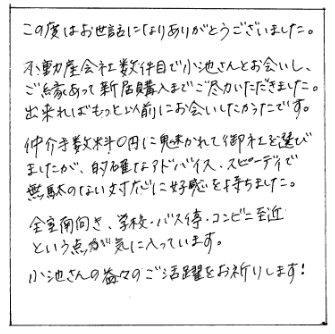 この度はお世話になりありがとうございました。
不動産会社数件目で小池さんとお会いし、
ご縁あって新居購入までご尽力いただきました。
出来ればもっと以前にお会いしたかったです。
仲介手数料0円に魅かれて御社を選び
ましたが、的確なアドバイス、スピーディで
無駄のない対応に好感を持ちました。
全室南向き、学校・バス停・コンビニ至近
という点が気に入っています。
小池さんの益々のご活躍をお祈りします!